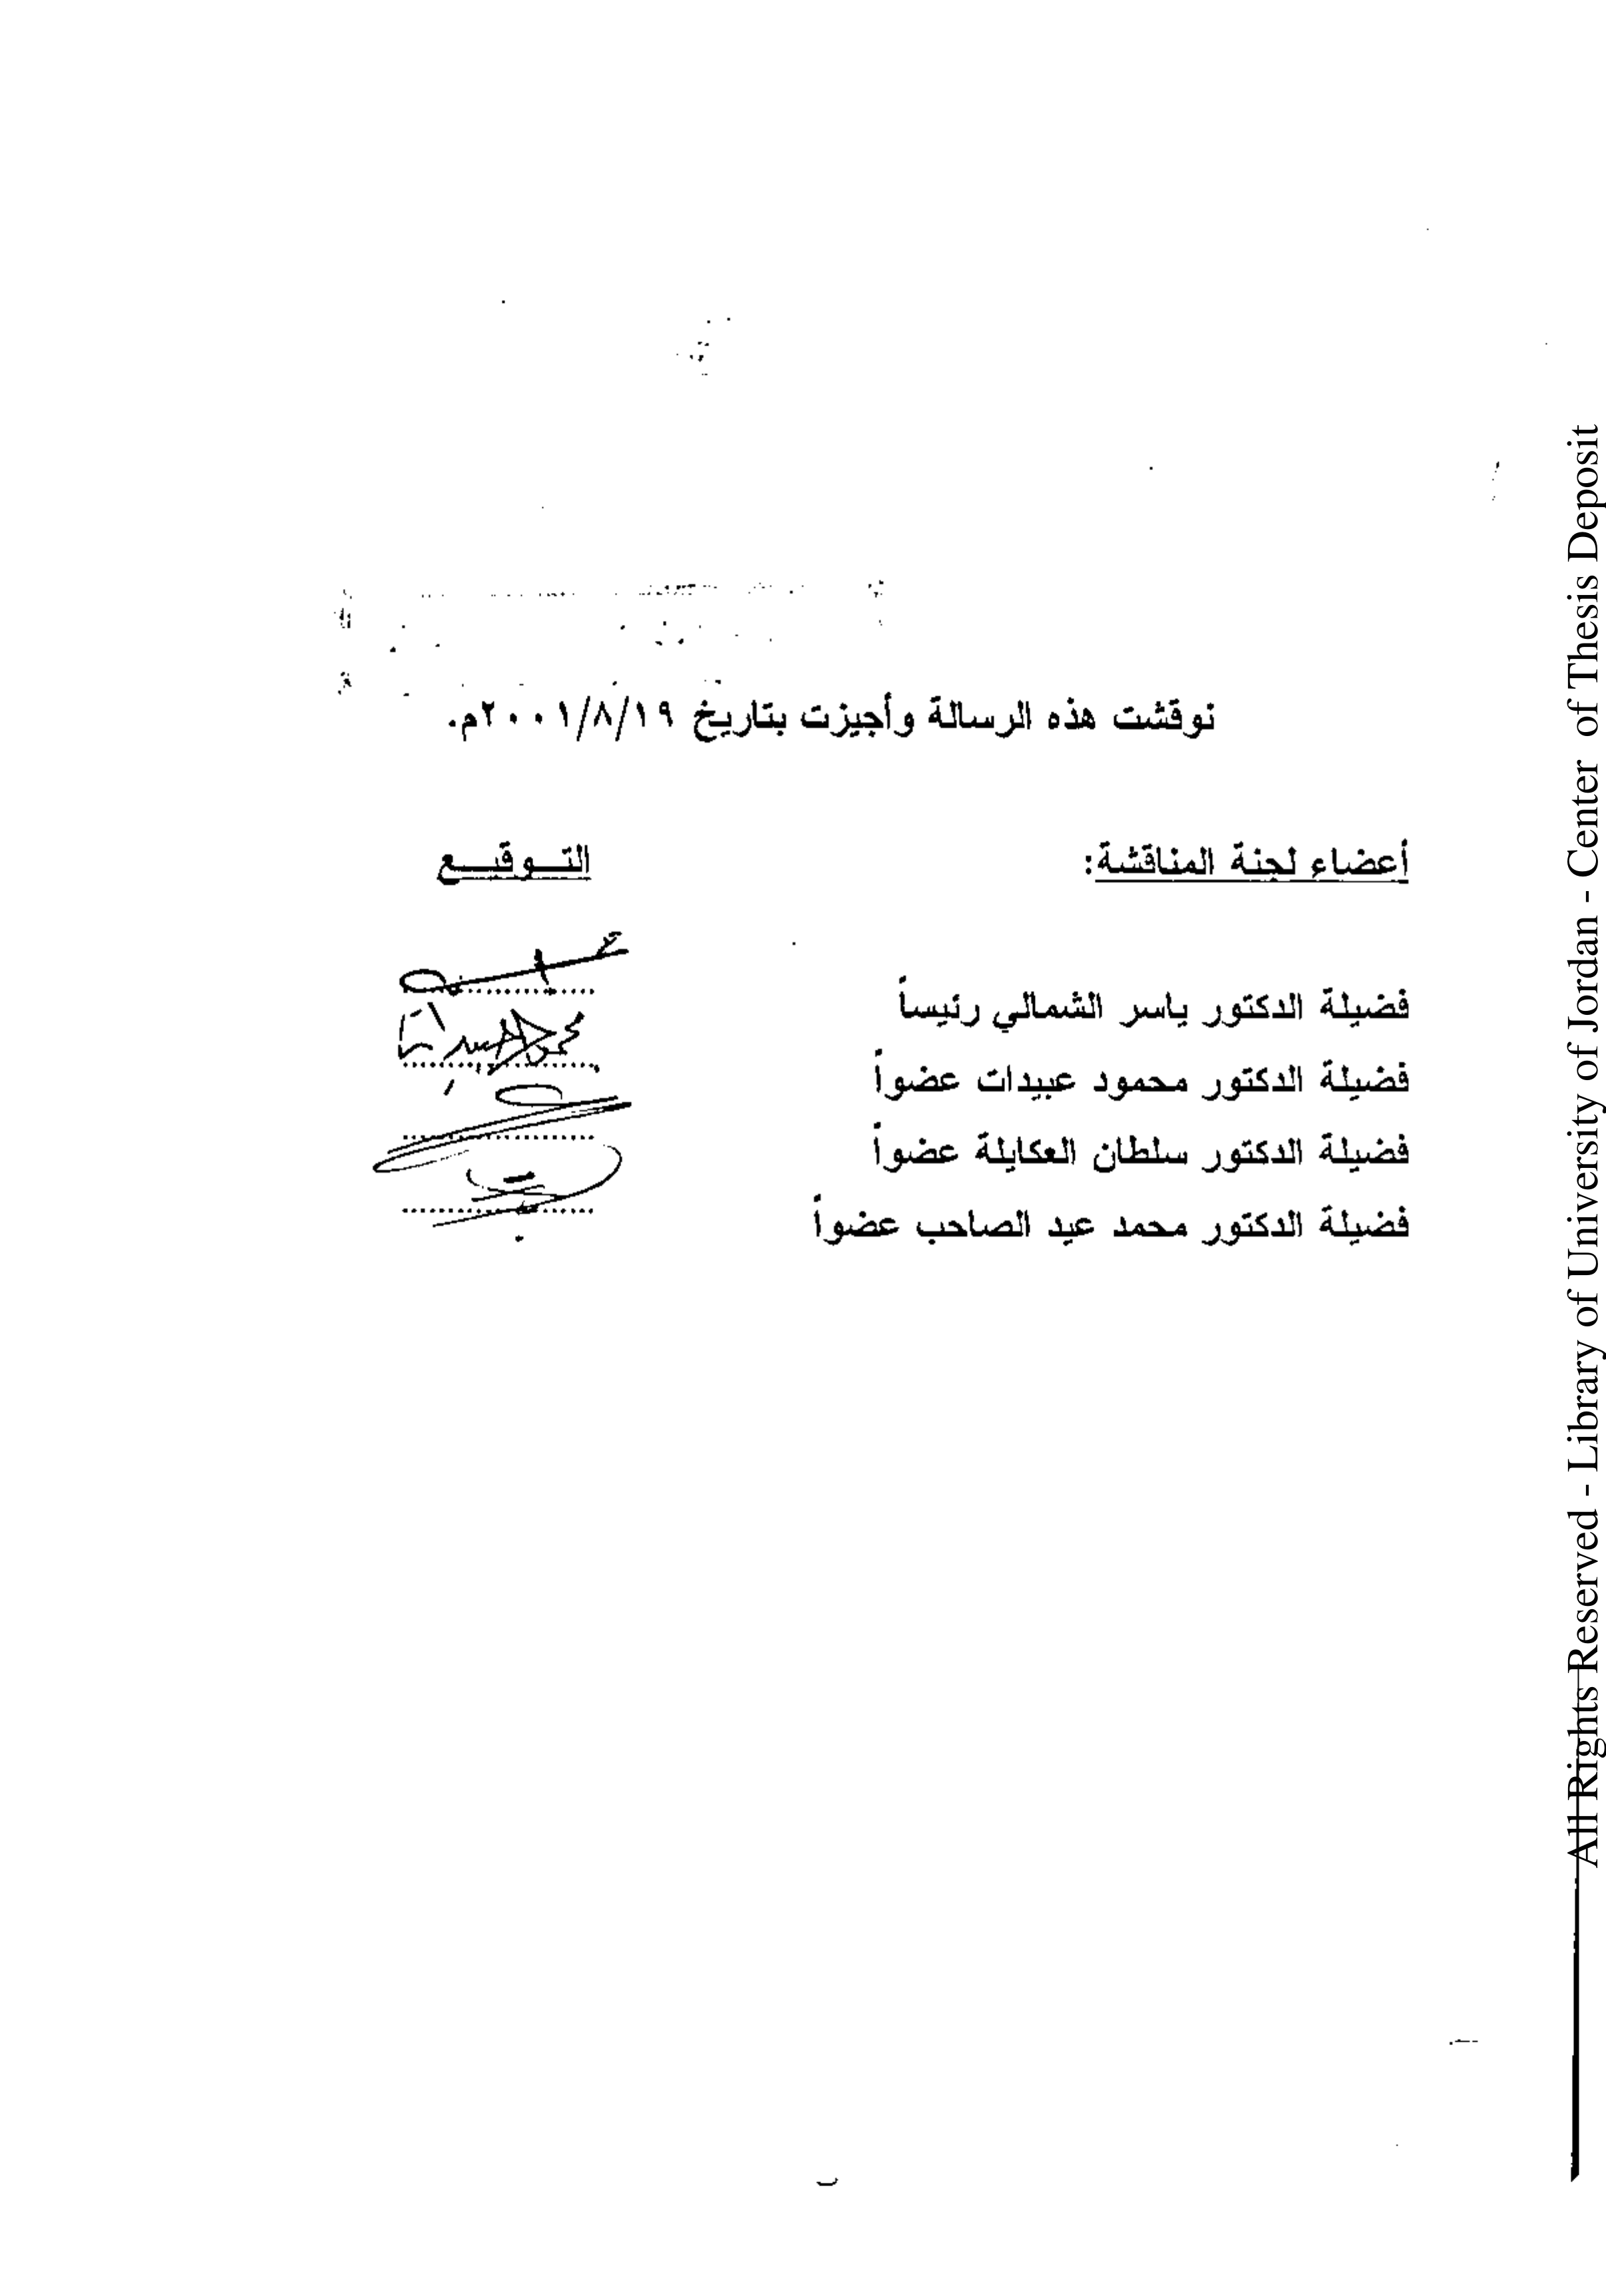 نوقشت هذه الرسالة وأجيزت بتاريخ ٢٠٠١/٨/١٩م.
أعضاء لجنة المناقشة: التـــوقيـــع
فضيلة الدكتور ياسر الشمالي رئيساً
فضيلة الدكتور محمود عبيدات عضواً
فضيلة الدكتور سلطان العكايلة عضواً
فضيلة الدكتور محمد عيد الصاحب عضواً
All Rights Reserved - Library of University of Jordan - Center of Thesis Deposit